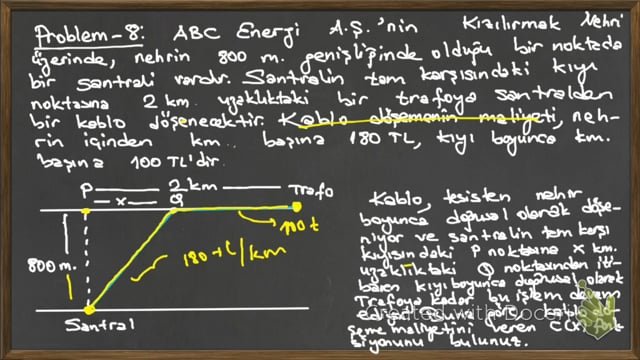 Problem-8: ABC Energi A.Ş.'nin Kızılırmak Nehri
üzerinde, nehrin 800 m. genişliğinde olduğu bir noktada
bir santrali vardır. Santralin tam karşısındaki kıyı
noktasına 2 km. uzaklıktaki bir trafoya santralden
bir kablo döşenecektir. Kablo döşemenin maliyeti, neh-
rin içinden km. başına 180 TL, kıyı boyunca km.
başına 100 TL'dir.
P 2 km Trafo
x Q
100 t
180 TL/km
800 m.
Santral
Kablo, tesisten nehir
boyunca doğrusal olarak döşe-
niyor ve santralin tam karşı
kıyısındaki P noktasına x km.
uzaklıktaki Q noktasından iti-
baren kıyı boyunca doğrusal olarak
Trafoya kadar bu işlem devam
Created with Doceri
şeme maliyetini veren C(x)
siyonunu bulunuz.